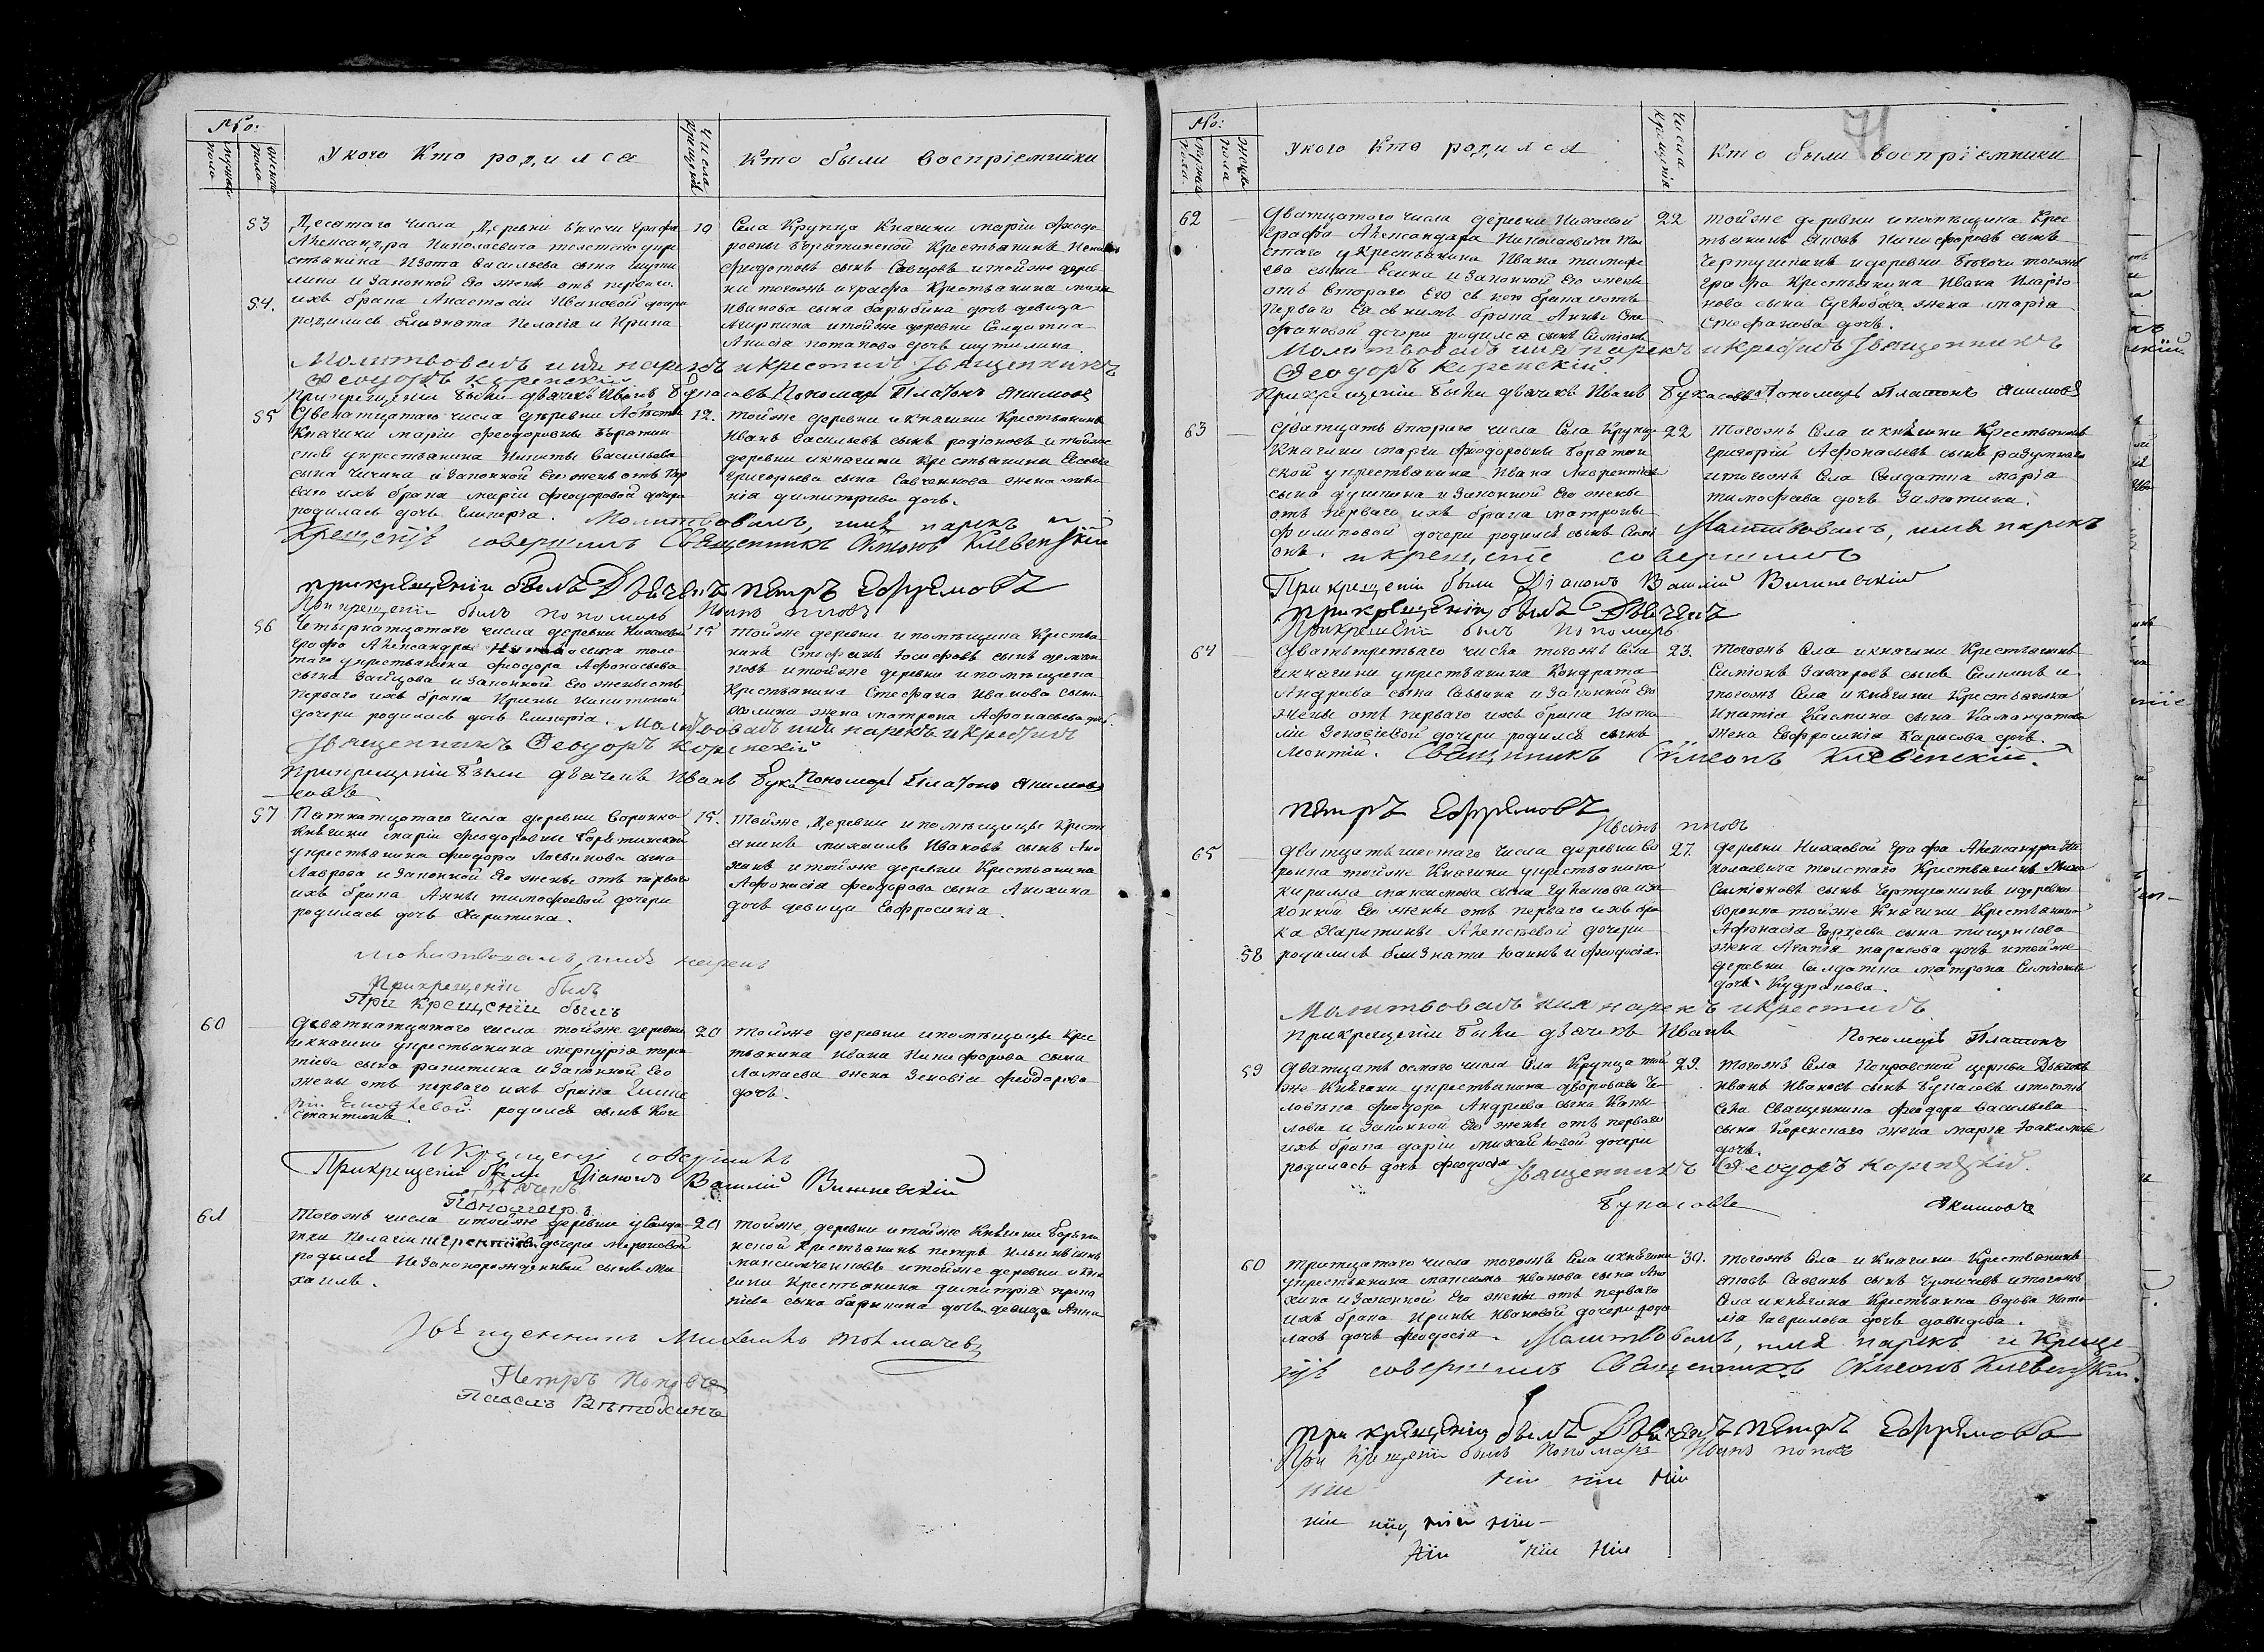 №о:
мужеска пола
женска пола
У кого Кто родился
Числа крещенія
Кто были воспріемники
53
Десятого числа, Деревни Бѣгочи Графа
Александра Николаевича толстаго у кре
стьянина Изота васильева сына шути
лина и Законной Его жены отъ перваго
54.
ихъ брака Анастасіи Ивановой дочери
родились близната Пелагія и Ирина
10
Села Крупца Княгини маріи Феодо
ровны Борятинской Крестьянинъ
Феодотовъ сынъ Савцовъ и тойже дерев
ни тогожъ и графа Крестьянина
Иванова сына барыбина дочь девица
Акирпина и тойже деревни Солдатка
Анисія потапова дочь шутилина
Молитвовалъ имя нарекъ и крестилъ Священникъ
Феодоръ Коренскій
При крещеніи были дьячекъ Иванъ Букасовъ Пономарь Платонъ Якимовъ
55
Двенатцатого числа деревни
Княгини маріи Феодоровны Борятин
ской у крестьянина Никиты Васильева
сына Чичина и Законной Его жены отъ Пер
ваго ихъ брака маріи Феодоровой дочери
родилась дочь Гликерія.
12.
тойже деревни и княгини Крестьянинъ
Иванъ васильевъ сынъ родіоновъ и тойже
деревни и княгини Крестьянина
григорьева сына Савченкова жена
димитріева дочь.
Молитвовалъ, имя нарекъ и
Крещеніе совершилъ Священникъ Симеонъ Клевенскій
При крещеніи былъ Дьячекъ Петръ Ефремовъ
При крещеніи былъ пономарь Иванъ поповъ
56
Четырнатцатого числа деревни Нихаевой
Графа Александра толс
таго у крестьянина Феодора Афонасьева
сына Зайцова и Законной Его жены отъ
перваго ихъ брака Ирины Никитиной
дочери родилась дочь Гликерія.
15
тойже деревни и помѣщика Крестья
нинъ Стефанъ Іосифовъ сынъ
и тойже деревни и помѣщика
Крестьянина Стефана Иванова сына
жена матрона Афонасьева дочь.
Молитвовалъ имя нарекъ и крестилъ
Священникъ Феодоръ Коренскій
При крещеніи были дьячекъ Иванъ Бука Пономарь Платонъ Якимовъ
совъ
57
Пятнатцатого числа деревни Воронко
Княгини маріи Феодоровны Борятинской
у крестьянина Феодора Логвинова сына
Лаврова и Законной Его жены отъ перваго
ихъ брака Анны тимофеевой дочери
родилась дочь Харитина.
15.
тойже Деревни и помѣщицы Крестья
янинъ михаилъ Ивановъ сынъ Ано
хинъ и тойже деревни Крестьянина
Афонасія Феодорова сына Анохина
дочь девица Евфросинія.
Молитвовалъ, имя нарекъ
При крещеніи былъ
При крещеніи былъ
60
Девятнатцатого числа тойже деревни
и княгини у крестьянина меркурія
тіева сына фатитина и Законной Его
жены отъ перваго ихъ брака
родился сынъ Кон
стантинъ.
20
тойже деревни и помѣщицы Крес
тьянина Ивана Никифорова сына
Ламаева жена Зеновія феодорова
дочь.
И Крещеніе совершилъ
При крещеніи были Діаконъ Василій Вишневскій
Дьячекъ
Пономарь
61
Тогожъ числа и тойже деревни у Солда
тки Пелагіи дочери мироновой
родился Незаконорожденный сынъ Ми
хаилъ.
20
тойже деревни и тойже Княгини Борятин
ской Крестьянинъ петръ Ильинъ сынъ
максимченковъ и тойже деревни и Кня
гини Крестьянина димитрія проко
піева сына дочь девица Анна
Священникъ Михаилъ Толмачевъ
Петръ Поповъ
Павелъ
№о:
мужеска пола.
женска пола
У кого Кто родился
Числа Крещенія
71
Кто были воспріемники
62
Дватцатого числа деревни Нихаевой
Графа Александра Николаевича тол
стаго у Крестьянина Ивана тимофе
ева сына Есина и Законной Его жены
отъ втораго Его съ нею брака и отъ
перваго Ея съ нимъ брака Анны Сте
фановой дочери родился сынъ Симіонъ
22
тойже деревни и помѣщика Крес
тьянинъ Яковъ Никифоровъ сынъ
Чертушкинъ и деревни Бѣгочи тогожъ
графа Крестьянина Ивана Иларіо
нова сына жена марія
Стефанова дочь.
Молитвовалъ имя нарекъ и крестилъ Священникъ
Феодоръ Коренскій.
При крещеніи были дьячекъ Иванъ Букасовъ Пономарь Платонъ Якимовъ
63
Дватцать втораго числа Села Крупца
Княгини маріи Феодоровны Борятин
ской у крестьянина Ивана Лаврентіева
сына и Законной Его жены
отъ перваго ихъ брака матроны
Филиповой дочери родился сынъ Сими
онъ.
22
тогожъ Села и княгини Крестьянинъ
григорій Афонасьевъ сынъ
и тогожъ Села Солдатка марія
тимофеева дочь Зимотина.
Молитвовалъ, имя нарекъ
и крещеніе совершилъ
При крещеніи были Діаконъ Василій Вишневскій
При крещеніи былъ Дьячекъ
При крещеніи былъ пономарь
64
Дватьтретьаго числа тогожъ Села
и княгини у крестьянина Кондрата
Андреева сына Саввина и Законной Его
жены отъ перваго ихъ брака Ната
ліи Зеновіевой дочери родился сынъ
Леонтій.
23.
тогожъ Села и княгини Крестьянинъ
Симіонъ Захаровъ сынъ и
тогожъ Села и княгини Крестьянина
Игнатія сына
жена Евфросинія Тарасова дочь.
Священникъ Симеонъ Клевенскій.
Петръ Ефремовъ
Иванъ поповъ
65
Дватцать шестаго числа деревни Во
ронка тойже Княгини у крестьянина
кирилла максимова сына и за
конной Его жены отъ перваго ихъ бра
ка Харитины Алексѣевой дочери
58
родились близната Іоаннъ и Феодосія.
27.
Деревни Нихаевой Графа Александра Ни
колаевича толстаго Крестьянинъ
Симіоновъ сынъ Чертушкинъ и деревни
воронка тойже Княгини Крестьянина
Афонасія сына тищенкова
жена Агапія тарасова дочь и тойже
деревни Солдатка матрона Симіонова
дочь Кудрякова.
Молитвовалъ имя нарекъ и крестилъ
при крещеніи были дьячекъ Иванъ Пономарь Платонъ
59
Дватцать осмаго числа Села Крупца той
же Княгини у крестьянина дворового Че
ловѣка феодора Андреева сына Капы
лова и Законной Его жены отъ перваго
ихъ брака даріи михайловой дочери
родилась дочь Феодосія
29.
тогожъ Села Покровской церкви Дьячекъ
Иванъ Ивановъ сынъ Букасовъ и тогожъ
Села Священника Феодора Васильева
сына Коренскаго жена марія Іоакимова
дочь.
Священникъ Феодоръ Коренскій.
Букасовъ Якимовъ
60
тритцатого числа тогожъ Села и княгини
у крестьянина максима Иванова сына Ано
хина и Законной Его жены отъ перваго
ихъ брака Ирины Ивановой дочери роди
лась дочь Феодосія.
30.
тогожъ Села и Княгини Крестьянинъ
Яковъ Саввинъ сынъ Чуличевъ и тогожъ
Села и княгини Крестьянка Вдова Ната
лія Гаврилова дочь давыдова.
Молитвовалъ, имя нарекъ и Креще
ніе совершилъ Священникъ Симеонъ Клевенскій.
При крещеніи былъ Дьячекъ Петръ Ефремовъ
При крещеніи былъ пономарь Иванъ поповъ